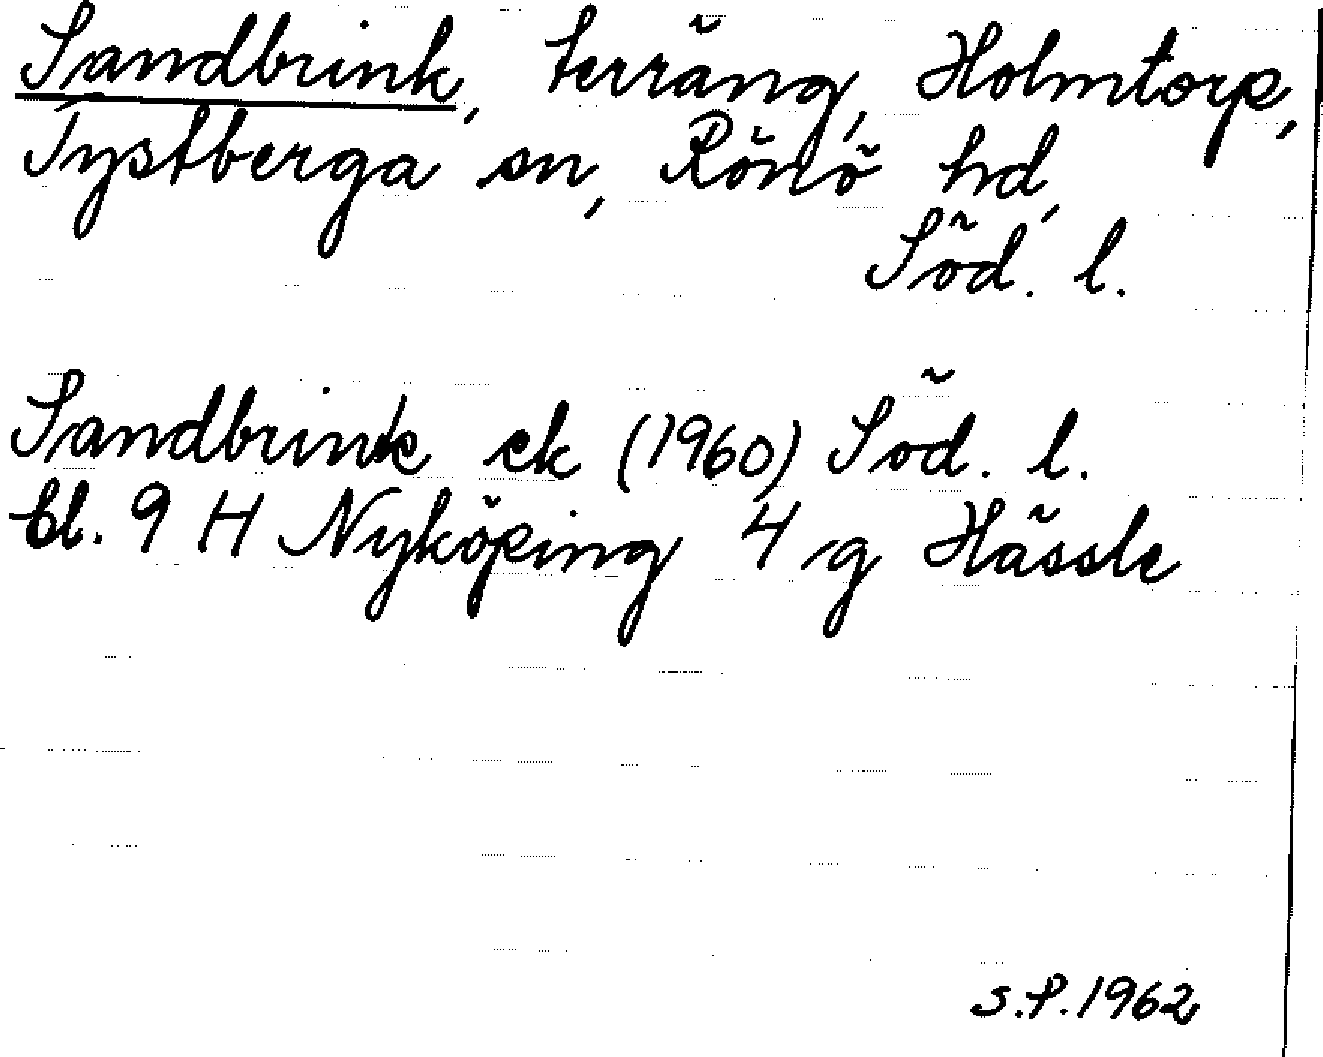 Sandbrink, terräng, Holmtorp,
Tystberga sn, Rönö hd,
Söd. l.
Sandbrink ek (1960) Söd. l.
bl. 9 H Nyköping 4 g Hässle
S.P. 1962